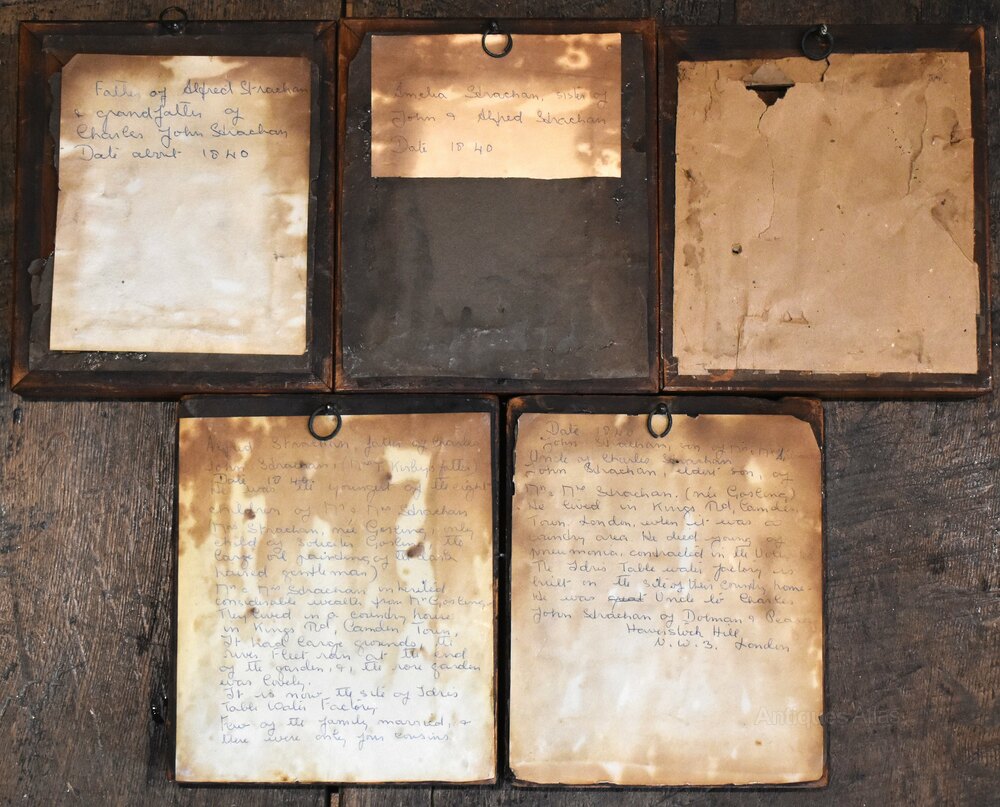 Father of Alfred Strachan
& grandfather of
Charles John Strachan
Date about 1840
Amelia Strachan, sister of
John & Alfred Strachan
Date 1840
Alfred Strachan, father of Charles
John Strachan, (Mrs T Kirby's father)
Date 1840.
He was the youngest of the eight
children of Mr & Mrs Strachan
Mrs Strachan, née Gosling, only
child of solicitor Gosling, (the
large oil painting of the dark
haired gentleman)
Mr & Mrs Strachan inherited
considerable wealth from Mr Gosling.
They lived in a country house
in Kings Rd, Camden Town,
It had large grounds, the
river Fleet ran at the end
of the garden, &, the rose garden
was lovely.
It is now the site of Idris
Table Water Factory
Few of the family married, &
there were only four cousins
Date
John Strachan, son of Mr & Mrs
Uncle of Charles Strachan
John Strachan, elder son, of
Mr & Mrs Strachan. (née Gosling)
He lived in Kings Rd, Camden
Town, London, when it was a
country area. He died young of
pneumonia, contracted in the
The Idris Table water factory is
built on the site of their country home.
He was great Uncle to Charles
John Strachan of Dolman &
Haverstock Hill
N.W.3. London